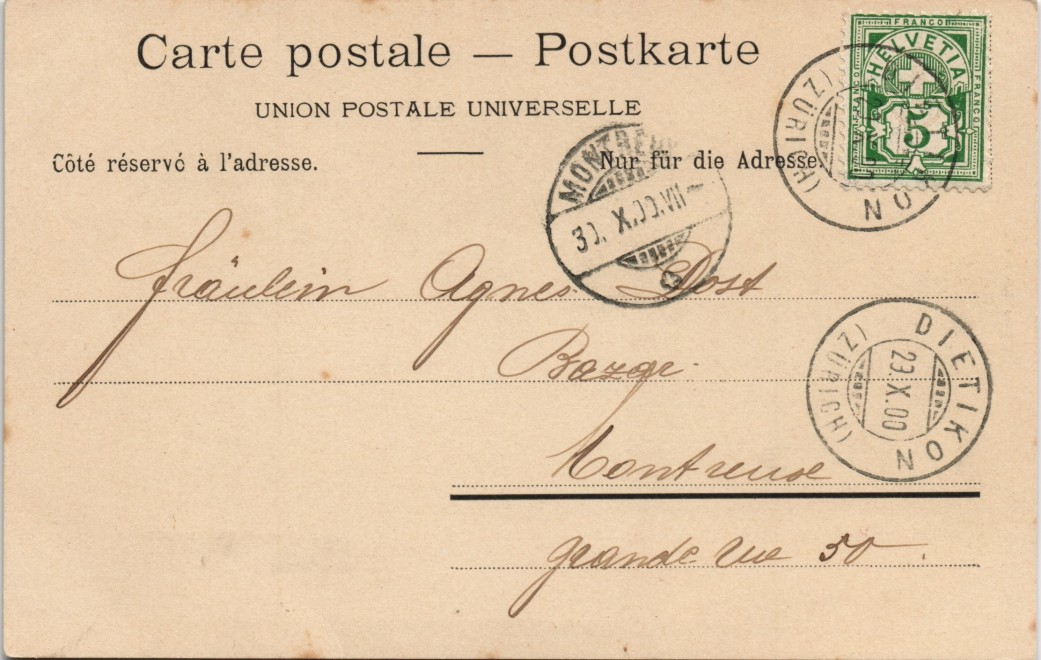 Carte postale — Postkarte
UNION POSTALE UNIVERSELLE
Côté réservé à l'adresse.
Nur für die Adresse.
FRANCO
FRANCO
FRANCO
HELVETIA
5
(ZÜRICH)
MONTREUX
30. X. 00. VII
Fräulein Agnes Dost
Bazar
DIETIKON
(ZÜRICH)
23. X. 00
Montreuse
grande rue 50.